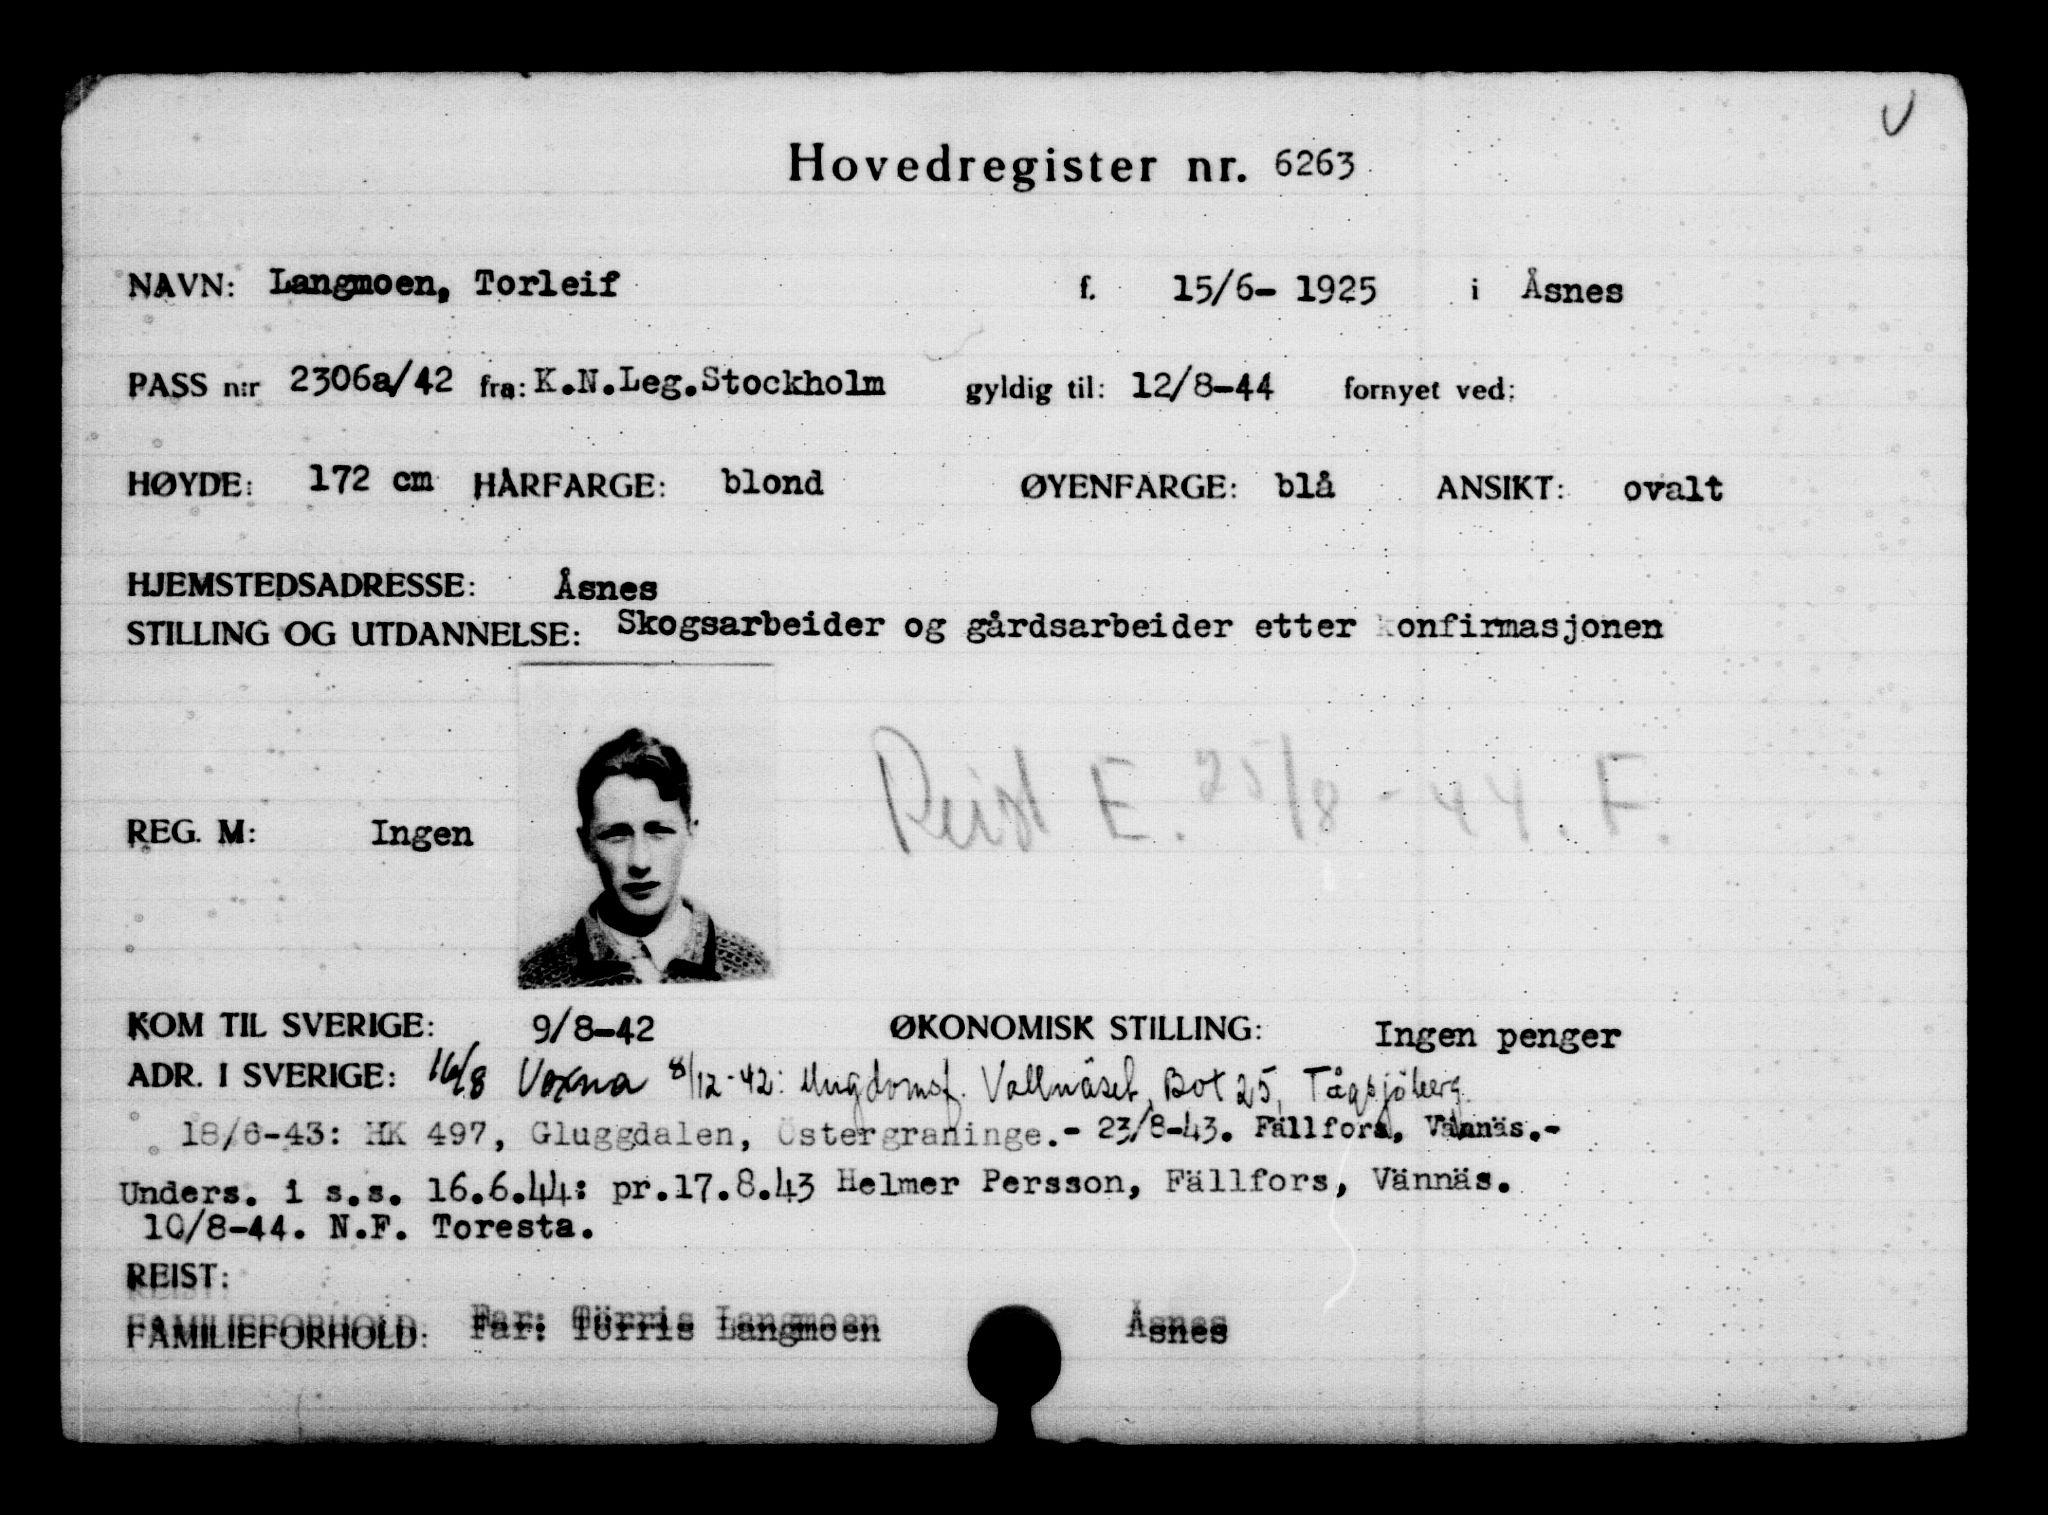 Hovedregister nr. 6263
NAVN: Langmoen, Torleif f. 15/6- 1925 i Åsnes
PASS n:r 2306a/42 fra: K.N.Leg.Stockholm gyldig til: 12/8-44 fornyet ved:
HØYDE: 172 cm HÅRFARGE: blond ØYENFARGE: blå ANSIKT: ovalt
HJEMSTEDSADRESSE: Åsnes
STILLING OG UTDANNELSE: Skogsarbeider og gårdsarbeider etter konfirmasjonen
Reist E. 25/8 - 44. F.
REG. M: Ingen
KOM TIL SVERIGE: 9/8-42 ØKONOMISK STILLING: Ingen penger
ADR. I SVERIGE: 16/8 Voxna 8/12-42: Ungdomsf. Vallnäset, Box 25, Tågsjöberg.
18/6-43: HK 497, Gluggdalen, Östergraninge.- 23/8-43. Fällfors, Vännäs.-
Unders. i s.s. 16.6.44: pr.17.8.43 Helmer Persson, Fällfors, Vännäs.
10/8-44. N.F. Toresta.
REIST:
FAMILIEFORHOLD: Far: Törris Langmoen Åsnes